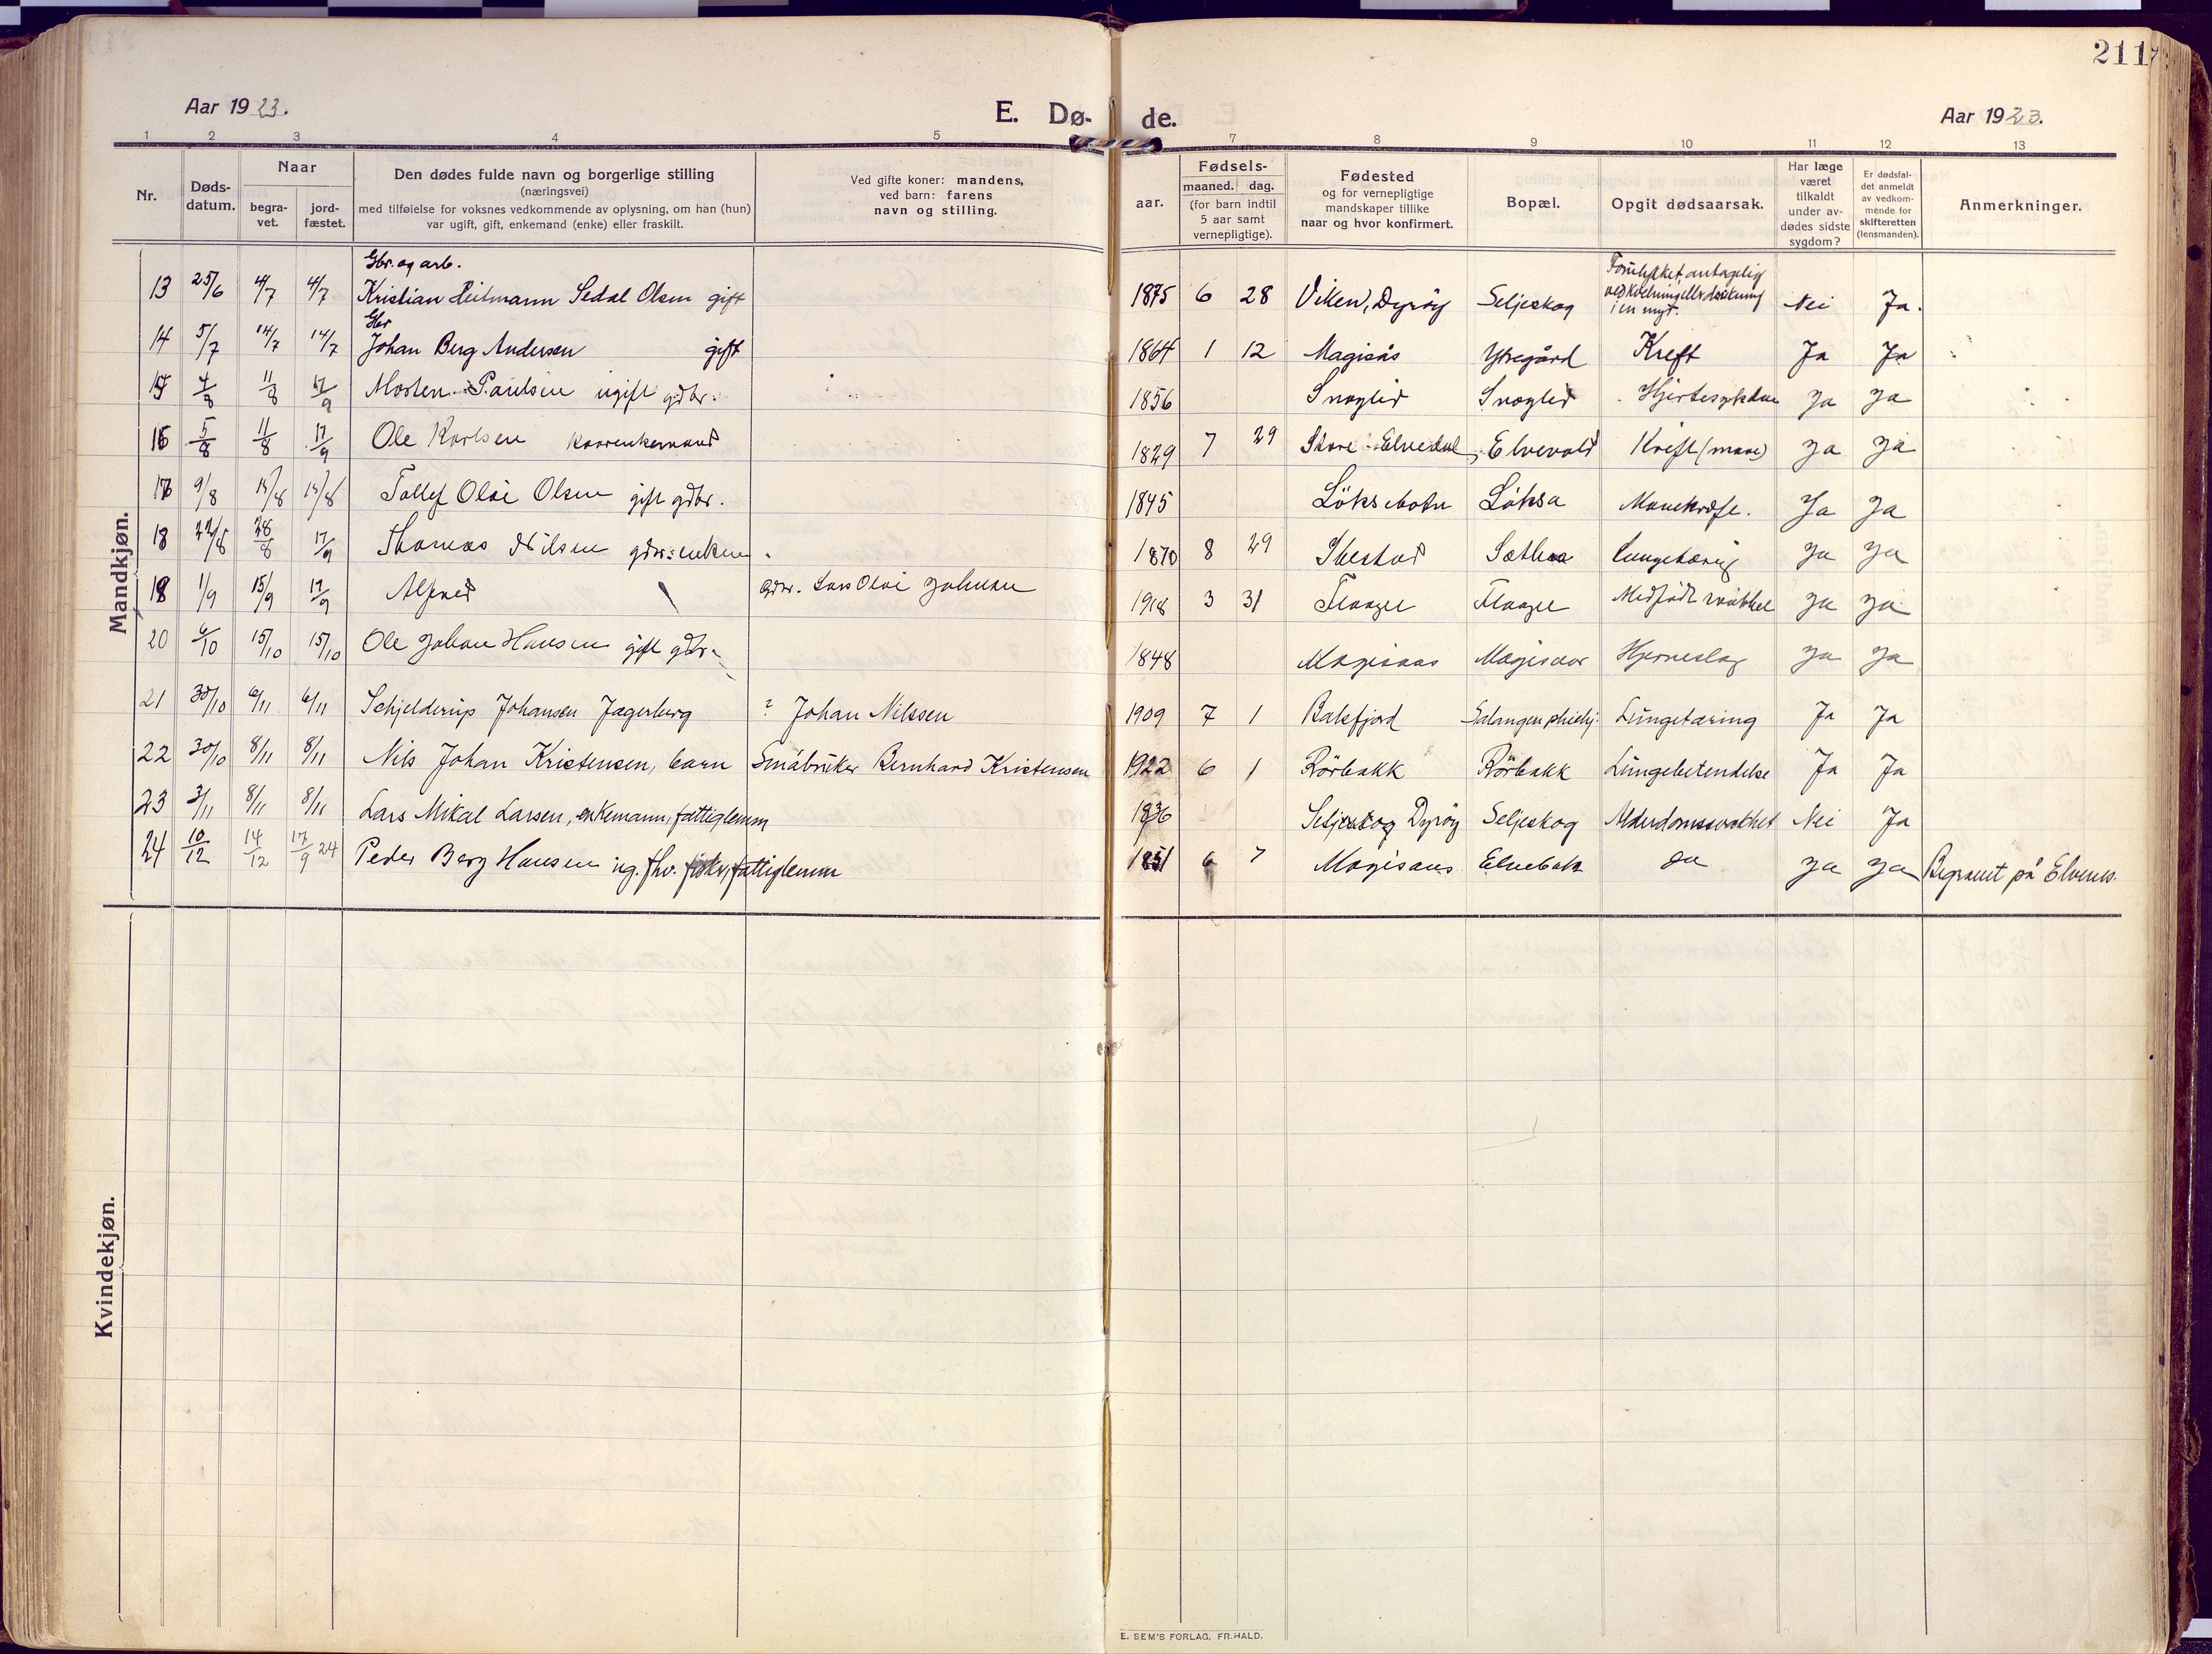 211
Aar 1923.
E. Dø- de.
Aar 1923.
1 2 3 4 5 7 8 9 10 11 12 13
Nr.
Døds-
datum.
Naar
begra-
vet.
jord-
fæstet.
Den dødes fulde navn og borgerlige stilling
(næringsvei)
med tilføielse for voksnes vedkommende av oplysning, om han (hun)
var ugift, gift, enkemand (enke) eller fraskilt.
Ved gifte koner: mandens,
ved barn: farens
navn og stilling.
aar.
Fødsels-
maaned. dag.
(for barn indtil
5 aar samt
vernepligtige).
Fødested
og for vernepligtige
mandskaper tillike
naar og hvor konfirmert.
Bopæl.
Opgit dødsaarsak.
Har læge
været
tilkaldt
under av-
dødes sidste
sygdom?
Er dødsfal-
det anmeldt
av vedkom-
mende for
skifteretten
(lensmanden).
Anmerkninger.
Mandkjøn.
Gbr. og arb.
13 25/6 4/7 4/7 Kristian Heitmann Sedal Olsen gift 1875 6 28 Viken, Dyröy Seljeskog Forulykket antagelig
i en myr. Nei Ja.
Gbr
14 5/7 14/7 14/7 Johan Berg Andersen gift 1864 1 12 Magisås Ytregård Kreft Ja Ja
15 4/8 11/8 17/9 Morten Paulsen ugift gdbr. 1856 Snoglid Snoglid Ja Ja
16 5/8 11/8 17/9 Ole Karlsen 1829 7 29 Store Elvedal, Elvevold Kreft (mave) Ja Ja
17 9/8 15/8 15/8 Tollef Olai Olsen gift gdbr. 1845 Löksebotn Löksa Ja Ja
18 22/8 28/8 17/9 Thomas Nilsen 1870 8 29 Ibestad Lungetæring Ja Ja
19 1/9 15/9 17/9 Alfred gdbr. Lars Olai Johnsen 1918 3 31 Medfødt svakhet Ja Ja
20 6/10 15/10 15/10 Ole Johan Hansen gift gdbr. 1848 Magisaas Magisaas Hjerneslag Ja Ja
21 30/10 6/11 6/11 Schjelderup Johansen Jagerberg ? Johan Nilssen 1909 7 1 Balsfjord Lungetæring Ja Ja
22 30/10 8/11 8/11 Nils Johan Kristensen, barn Småbruker Bernhard Kristensen 1922 6 1 Rörbakk Rörbakk Lungebetendelse Ja Ja
23 3/11 8/11 8/11 Lars Mikal Larsen, enkemann, fattiglemm 1836 Seljeskog Dyröy Seljeskog Alderdomssvakhet Nei Ja
24 10/12 14/12 17/9 24 Peder Berg Hansen ug. fhv. fisker, fattiglemm 1851 6 7 Magisaas Elvebak do Ja Ja Begravet på Elvenes.
Kvindekjøn.
E. SEM'S FORLAG, FR.HALD.